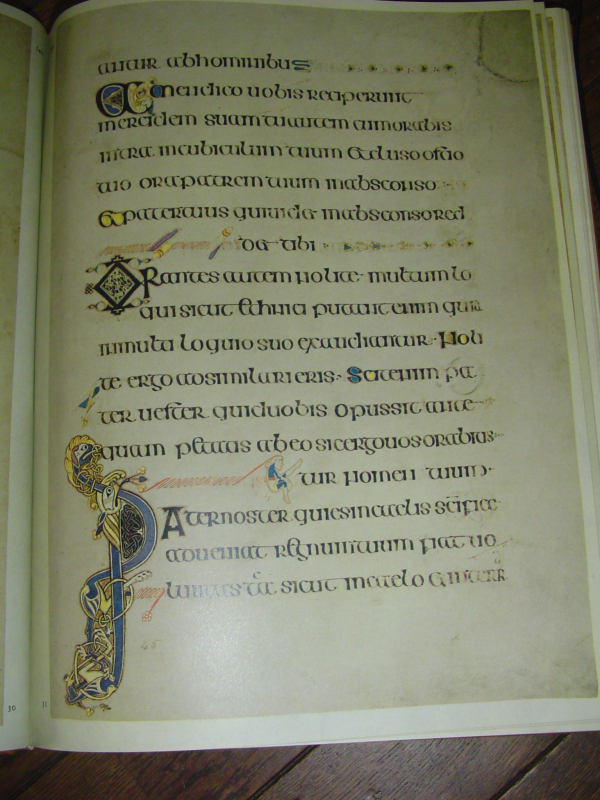 antur abhominibus
Amendico uobis reciperunt
mercidem suam tu autem cum orabis
intra incubiculum tuum & cluso ostio
tuo ora patrem tuum inabsconso
& pater tuus qui uid& inabsconso red
d& tibi
Orantes autem nolite multum lo
qui sicut &hnici putant enim quia
inmulta loquio suo exaudiantur · Noli
te ergo adsimilari eis · Scit enim pa
ter uester quid uobis opus sit ante
quam p&atis ab eo sic ergo uos orabitis ·
tur nomen tuum ·
Pater noster qui es in caelis scifice
adueniat regnum tuum fiat uo
luntas tua sicut in caelo & in terra
30
31